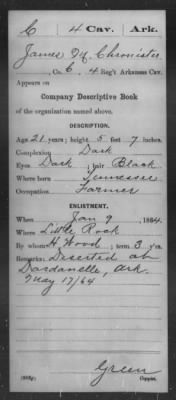 C 4 Cav. Ark.
James M. Chronister
, Co. C, 4 Reg't Arkansas Cav.
Appears on
Company Descriptive Book
of the organization named above.
DESCRIPTION.
Age 21 years; height 5 feet 7 inches.
Complexion Dark
Eyes Dark ; hair Black
Where born Tennessee
Occupation Farmer
ENLISTMENT.
When Jan 9 , 1864.
Where Little Rock
By whom H Wood ; term 3 y'rs.
Remarks: Deserted at
Dardanelle, Ark.
May 17/64
Green
Copyist.